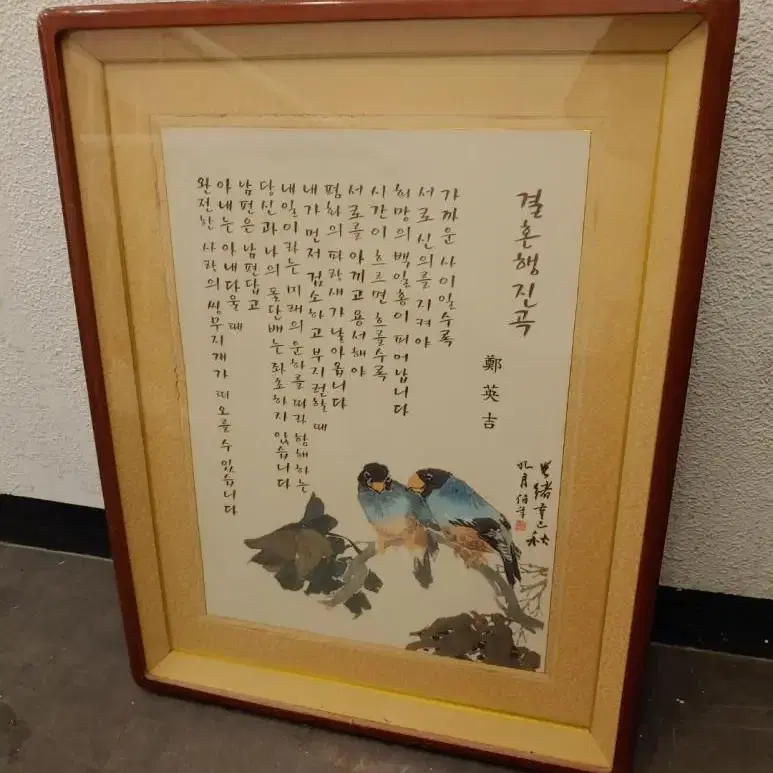 결혼행진곡
鄭英吉
가까운 사이일수록
서로 신의를 지켜야
희망의 백일홍이 피어납니다
시간이 흐르면 흐를수록
서로를 아끼고 용서해야
평화의 파랑새가 날아옵니다
내가 먼저 검소하고 부지런할 때
내일이라는 미래의 운하를 따라 항해하는
당신과 나의 돛단배는 좌초하지 않습니다
남편은 남편답고
아내는 아내다울 때
완전한 사랑의 쌍무지개가 떠오를 수 있습니다
辛巳 秋
九月